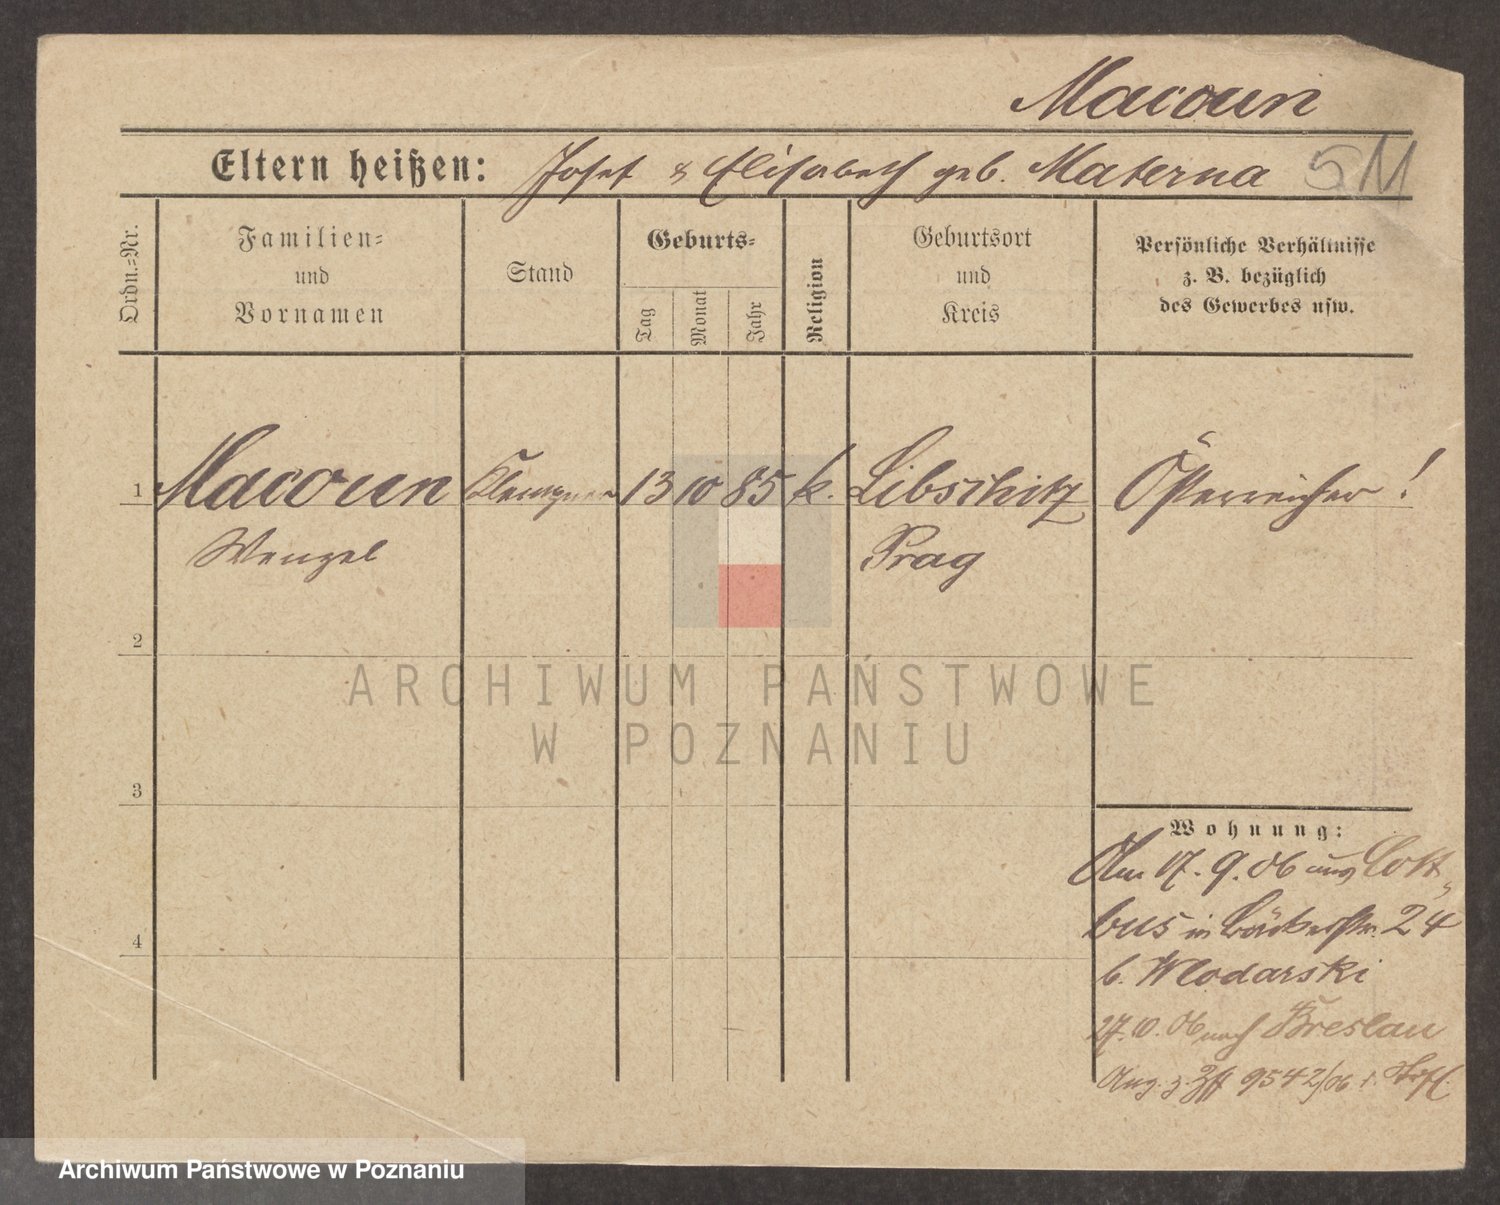 Macoun
Eltern heißen: Josef & Elisabeth geb. Materna 5 M
Ordn.-Nr.
Familien-
und
Vornamen
Stand
Geburts-
Tag
Monat
Jahr
Religion
Geburtsort
und
Kreis
Persönliche Verhältnisse
z. B. bezüglich
des Gewerbes usw.
1 Macoun Klempner 13 10 85 k. Libschitz Österreicher!
Wenzel Prag
2
ARCHIWUM PAŃSTWOWE
W POZNANIU
3
Wohnung:
Am 17.9.06 aus Cott-
bus in Bäckerstr. 24
4
b. Wlodarski
27.10.06 nach Breslau
9542/06
Archiwum Państwowe w Poznaniu